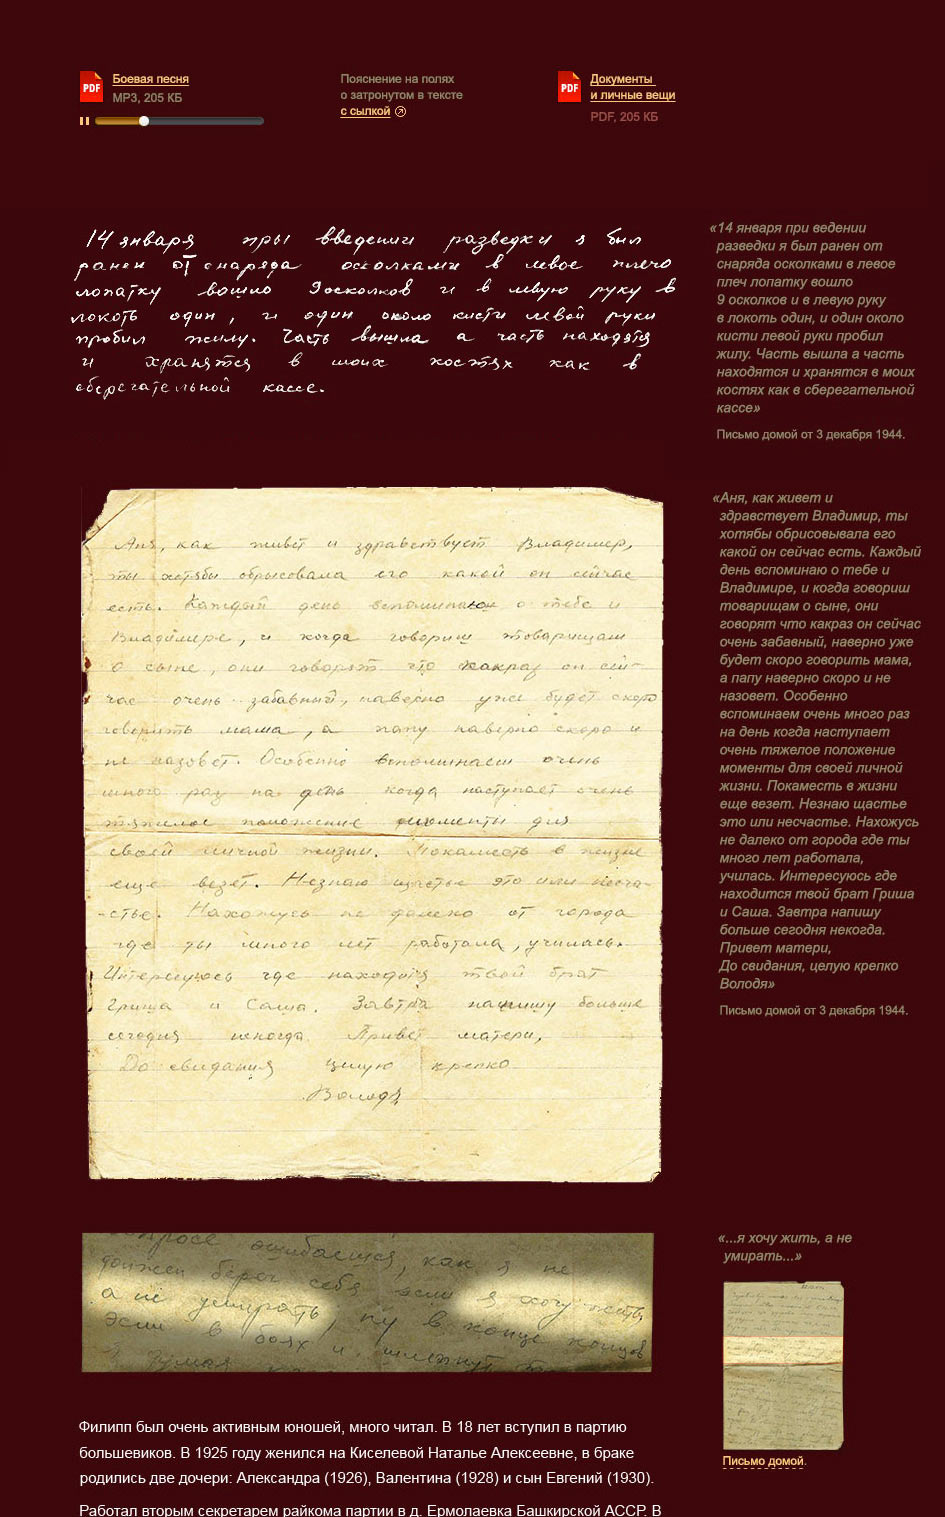 Боевая песня
MP3, 205 КБ
Пояснение на полях
о затронутом в тексте
с сылкой
Документы
и личные вещи
PDF, 205 КБ
14 января при введении разведки я был
ранен от снаряда осколками в левое плечо
лопатку вошло 9 осколков и в левую руку в
локоть один, и один около кисти левой руки
пробил жилу. Часть вышла а часть находятся
и хранятся в моих костях как в
сберегательной кассе.
«14 января при ведении
разведки я был ранен от
снаряда осколками в левое
плеч лопатку вошло
9 осколков и в левую руку
в локоть один, и один около
кисти левой руки пробил
жилу. Часть вышла а часть
находятся и хранятся в моих
костях как в сберегательной
кассе»
Письмо домой от 3 декабря 1944.
Аня, как живет и здравствует Владимир,
ты хотябы обрысовала его какой он сейчас
есть. Каждый день вспоминаю о тебе и
Владимере, и когда говориш товарищам
о сыне, они говорят что какраз он сей-
час очень забавный, наверно уже будет скоро
говорить мама, а папу наверно скоро и
не назовет. Особенно вспоминаеш очень
много раз на день когда наступает очень
тяжелое положение моменты для
своей личной жизни. Покаместь в жизне
еще везет. Незнаю щастье это или несча-
-стье. Нахожусь не далеко от города
где ты много лет работала, училась.
Интересуюсь где находится твой брат
Гриша и Саша. Завтра напишу больше
сегодня некогда. Привет матери,
До свидания целую крепко
Володя
«Аня, как живет и
здравствует Владимир, ты
хотябы обрисовывала его
какой он сейчас есть. Каждый
день вспоминаю о тебе и
Владимире, и когда говориш
товарищам о сыне, они
говорят что какраз он сейчас
очень забавный, наверно уже
будет скоро говорить мама,
а папу наверно скоро и не
назовет. Особенно
вспоминаем очень много раз
на день когда наступает
очень тяжелое положение
моменты для своей личной
жизни. Покаместь в жизни
еще везет. Незнаю щастье
это или несчастье. Нахожусь
не далеко от города где ты
много лет работала,
училась. Интересуюсь где
находится твой брат Гриша
и Саша. Завтра напишу
больше сегодня некогда.
Привет матери,
До свидания, целую крепко
Володя»
Письмо домой от 3 декабря 1944.
ошибаешся, как я не
должен береч себя если я хочу жить,
а не умирать, ну в конце концов
если в боях и шлепнут
я думаю
«...я хочу жить, а не
умирать...»
Письмо домой.
Филипп был очень активным юношей, много читал. В 18 лет вступил в партию
большевиков. В 1925 году женился на Киселевой Наталье Алексеевне, в браке
родились две дочери: Александра (1926), Валентина (1928) и сын Евгений (1930).
Работал вторым секретарем райкома партии в д. Ермолаевка Башкирской АССР. В